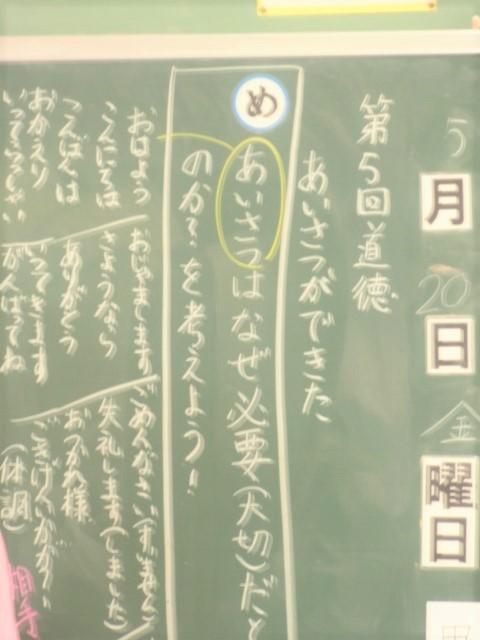 5月20日金曜日
第5回道徳
あいさつができた
め
あいさつはなぜ必要(大切)だと
のか?を考えよう!
おはよう
こんにちは
こんばんは
おかえり
いってらっしゃい
おじゃまします
さようなら
ありがとう
いってきます
がんばってね
ごめんなさい(すいません)
失礼します(しました)
おつかれ様
ごきげんいかが?
(体調)